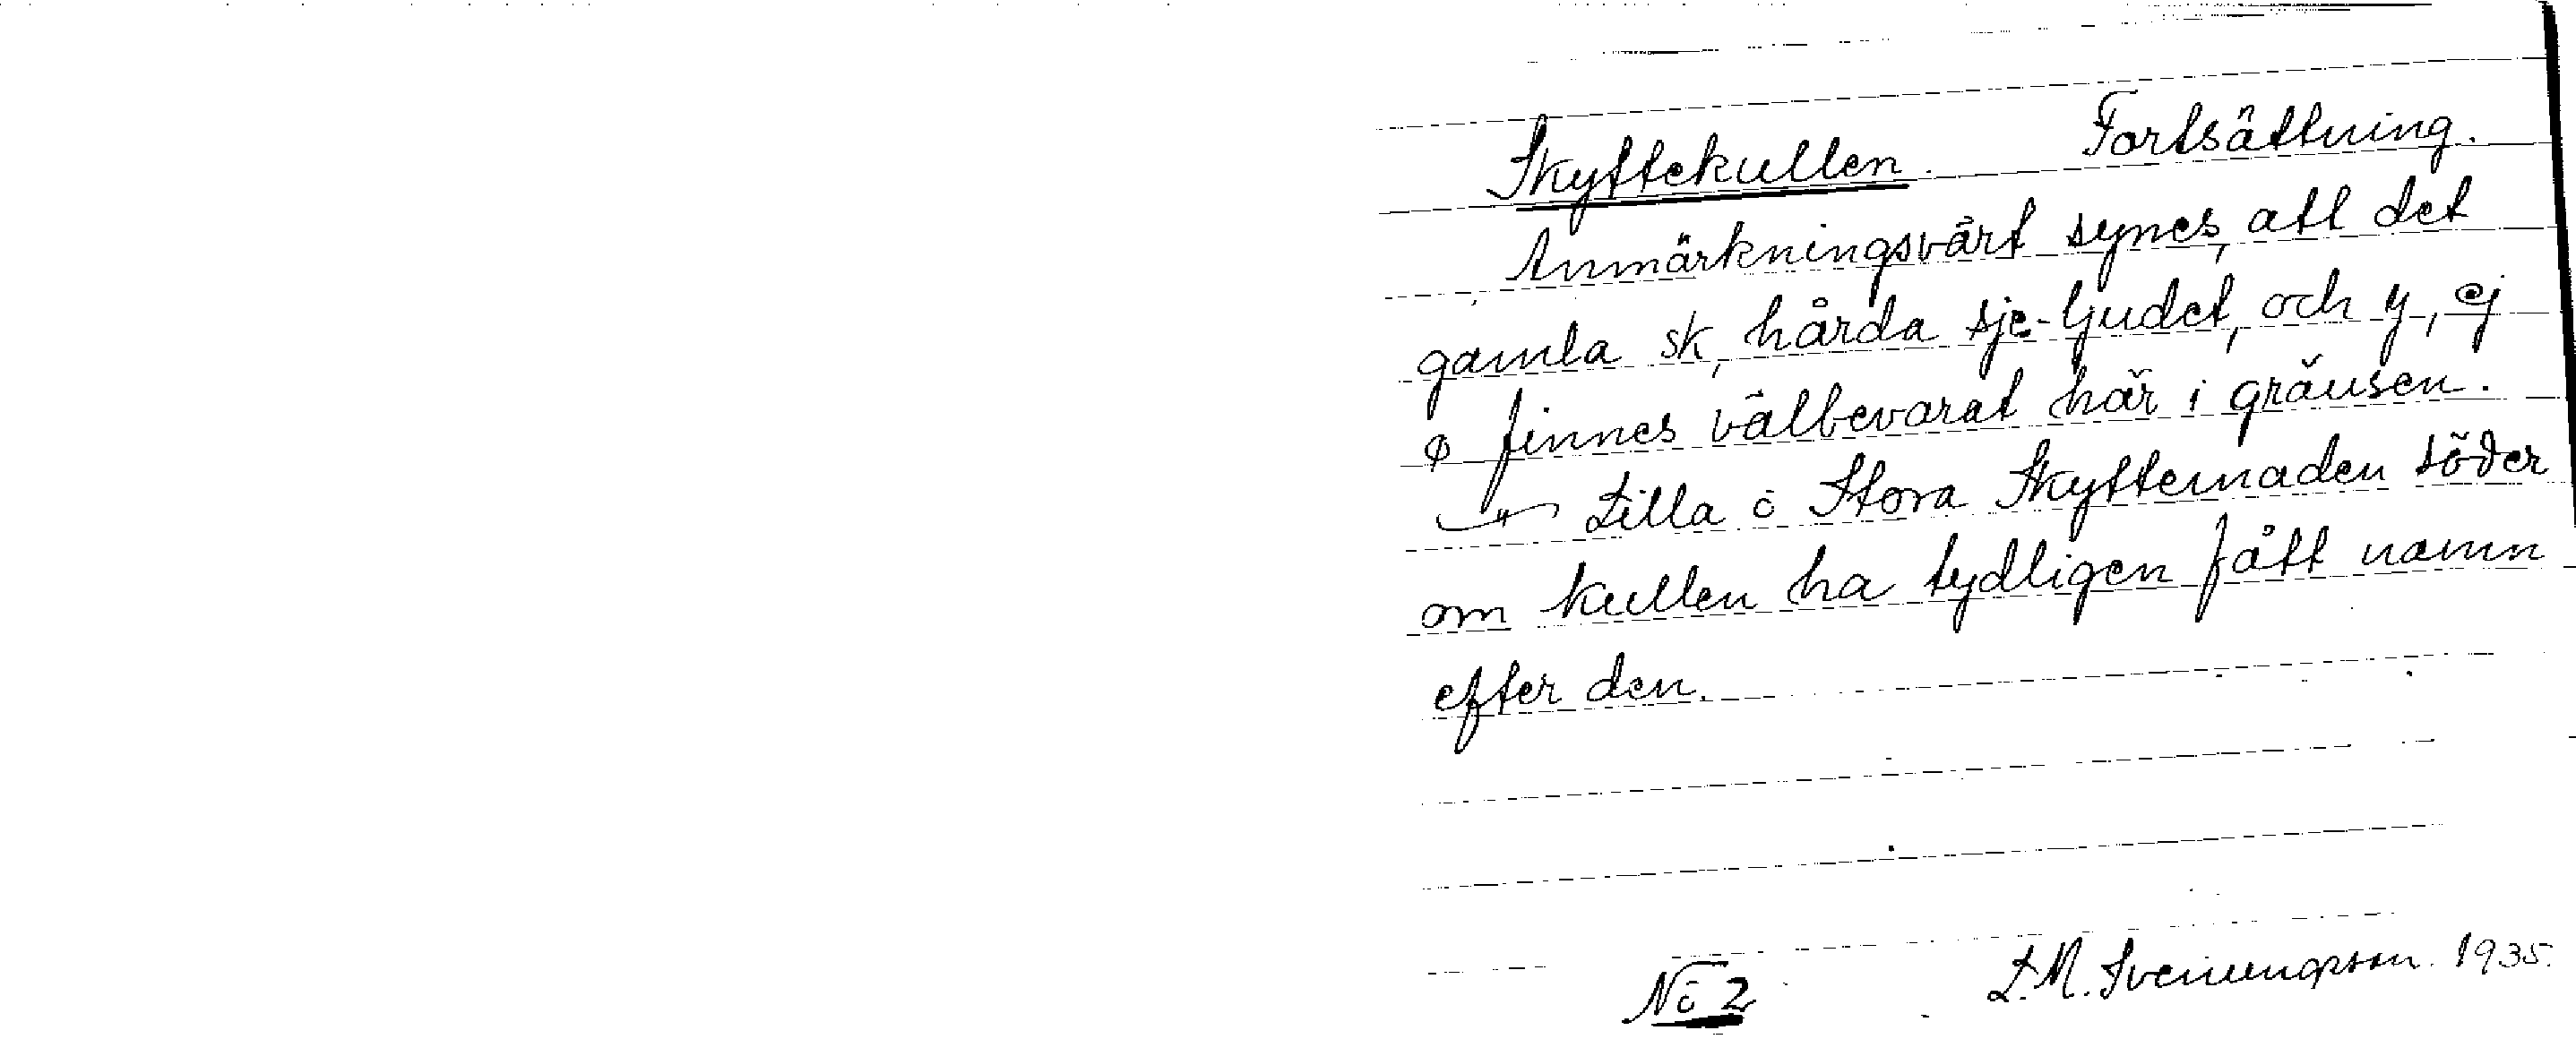 Skyttekullen. Fortsättning.
Anmärkningsvärt synes, att det
gamla sk, hårda sje-ljudet, och y, ej
ø finnes välbevarat här i gränsen.
Lilla o Stora Skyttemaden söder
om kullen ha tydligen fått namn
efter den.
No 2 L.M. Svenungsson. 1935.